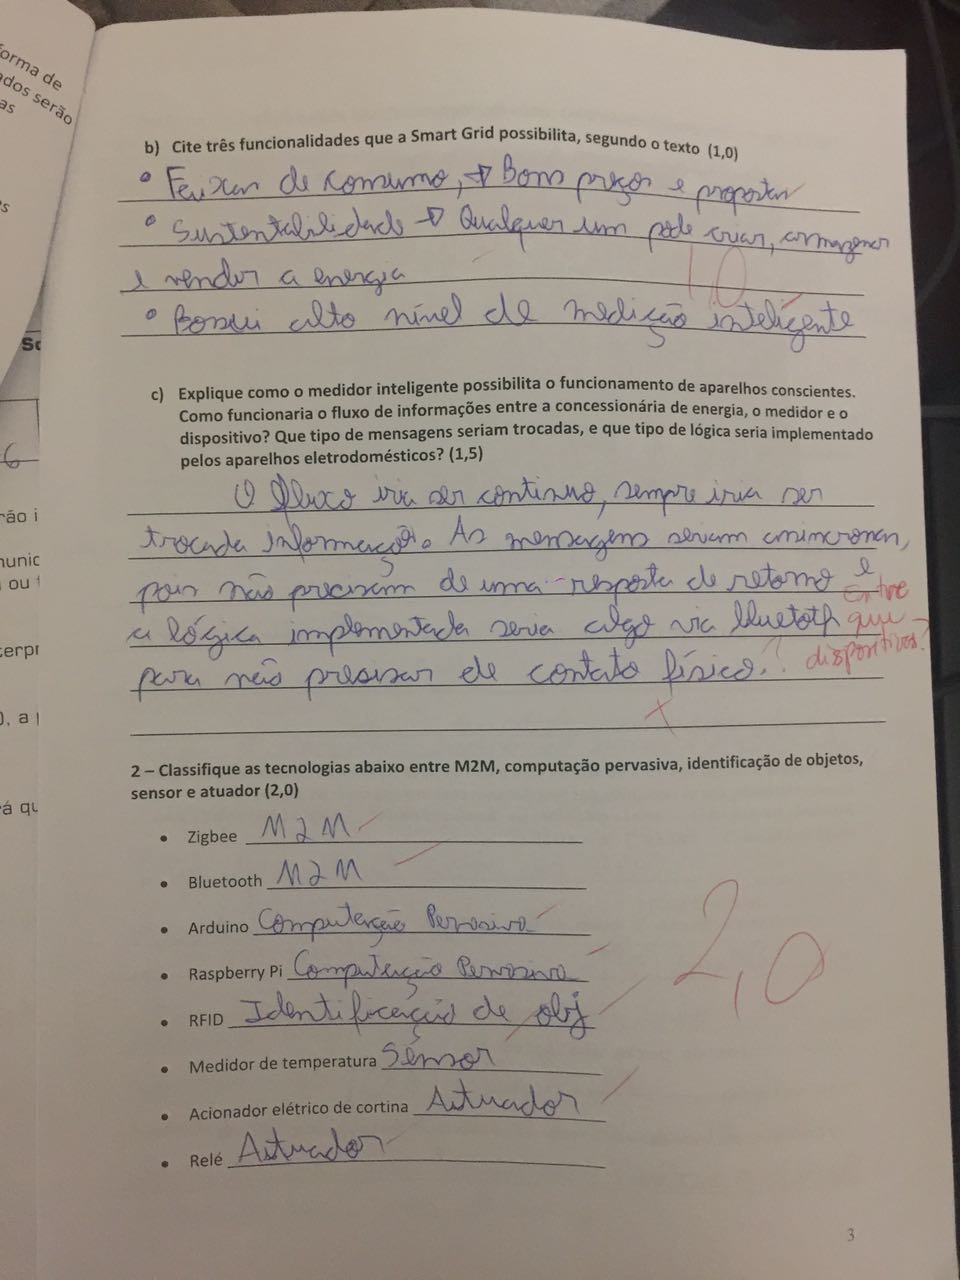 orma de
dos serão
as
s
So
6
rão i
munic
ou t
terpr
), a p
rá qu
b) Cite três funcionalidades que a Smart Grid possibilita, segundo o texto (1,0)
• Feixas de Consumo, → Bons preços e propostas
• Sustentabilidade → Qualquer um pode criar, armazenar
e vender a energia
1,0
• Possui alto nível de medição inteligente
c) Explique como o medidor inteligente possibilita o funcionamento de aparelhos conscientes.
Como funcionaria o fluxo de informações entre a concessionária de energia, o medidor e o
dispositivo? Que tipo de mensagens seriam trocadas, e que tipo de lógica seria implementado
pelos aparelhos eletrodomésticos? (1,5)
O fluxo iria ser continuo, sempre iria ser
trocada informação. As mensagens seriam assincronas,
pois não precisam de uma resposta de retorno e
a lógica implementada seria algo via bluetoth
para não presisar de contato físico.
?
Entre
que
dispositivos?
2 – Classifique as tecnologias abaixo entre M2M, computação pervasiva, identificação de objetos,
sensor e atuador (2,0)
• Zigbee M2M
• Bluetooth M2M
• Arduino Computação Pervasiva
• Raspberry Pi Computação Pervasiva
• RFID Identificação de obj
• Medidor de temperatura Sensor
• Acionador elétrico de cortina Astuador
• Relé Astuador
2,0
3